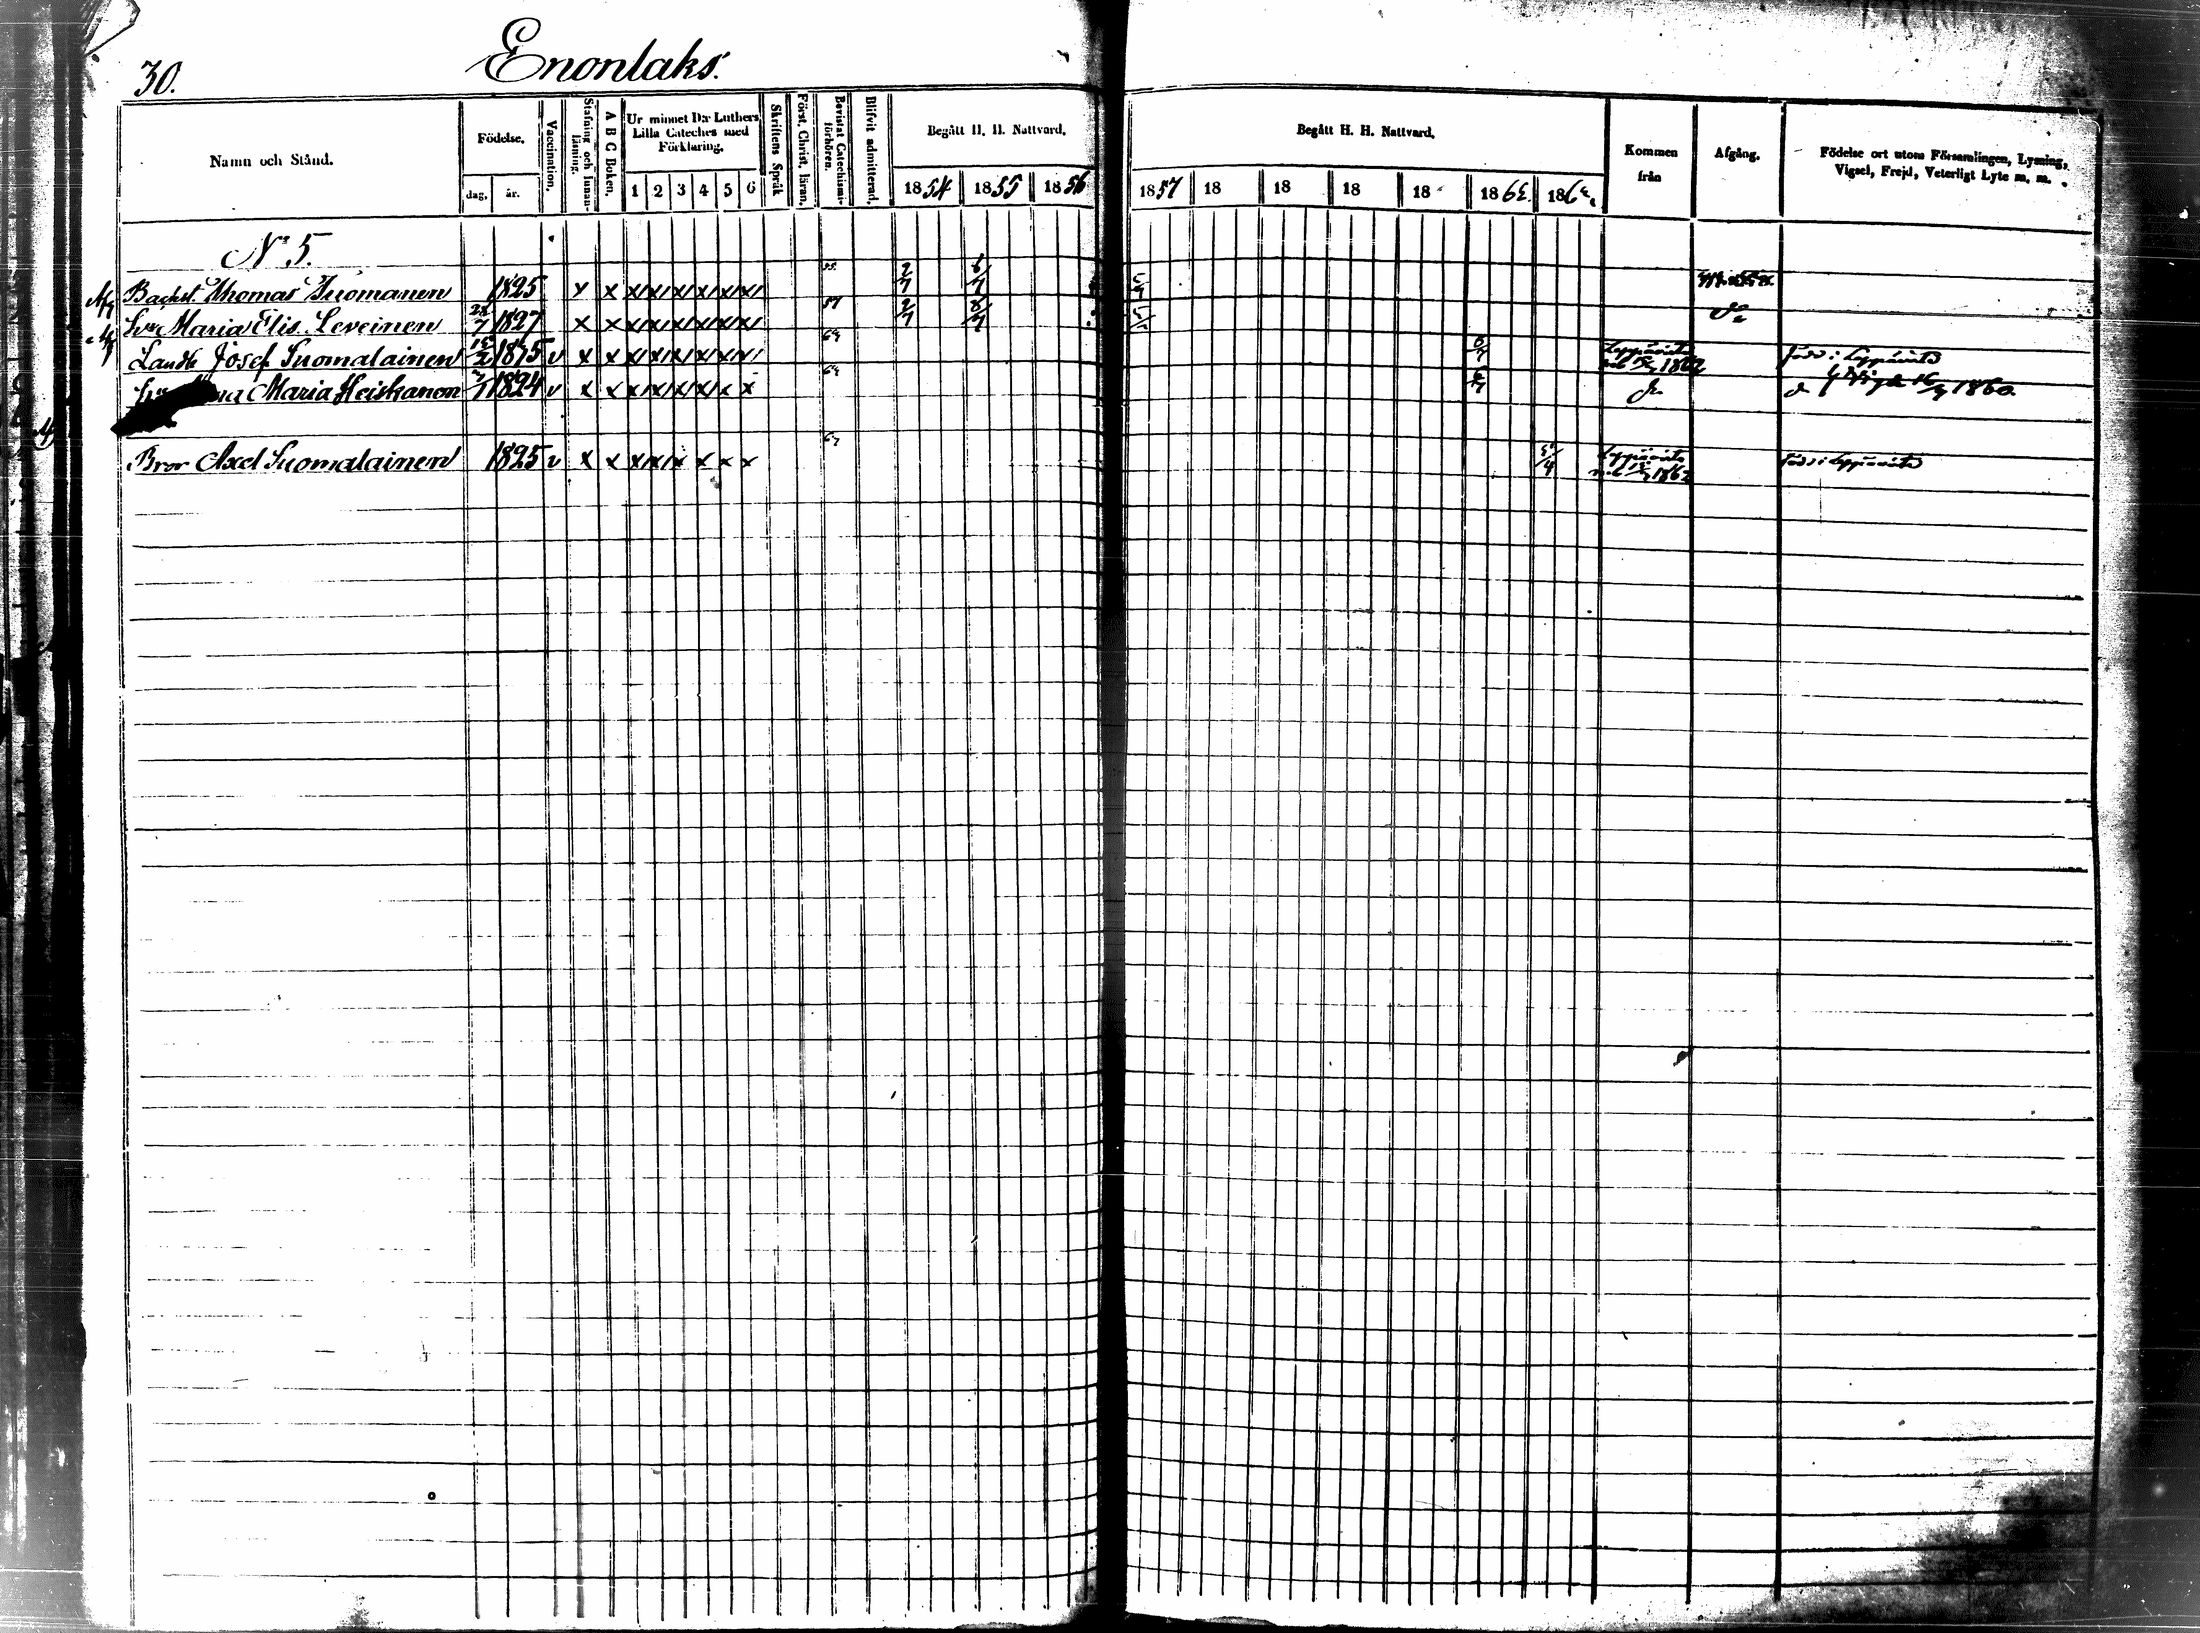 30.
Enonlaks.
Namn och Stånd.
Födelse.
dag.
år.
Vaccination.
Stafning och Innanläsning.
A B C Boken.
Ur minnet D:r Luthers Lilla Cateches med Förklaring.
1 2 3 4 5 6
Skriftens Språk
Först. Christ. läran.
Bevistat Catechismi-förhören.
Blifvit admitterad.
Begått H. H. Nattvard.
1854 1855 1856
Begått H. H. Nattvard.
1857 18 18 18 18 186 186
Kommen från
Afgång.
Födelse ort utom Församlingen, Lysning, Vigsel, Frejd, Veterligt Lyte m. m.
N 5.
Backst. Thomas Tuomanen 1825 x x x x x x x x 55 2/7 6/7
Maria Elis. Leveinen 1827 x x x x x x x x 57 2/7 8/7
Josef Suomalainen v x x x x x x x x 6/7 1862
Maria Heiskanen 1824 v x x x x x x x x 1860
Bror Axel Suomalainen 1825 v x x x x x x x x 1862